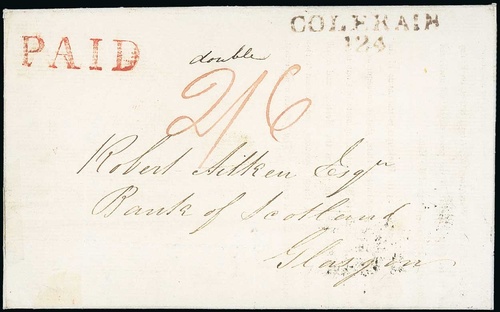 PAID
COLERAIN
124
double
2/6
Robert Aitken Esqr
Bank of Scotland
Glasgow